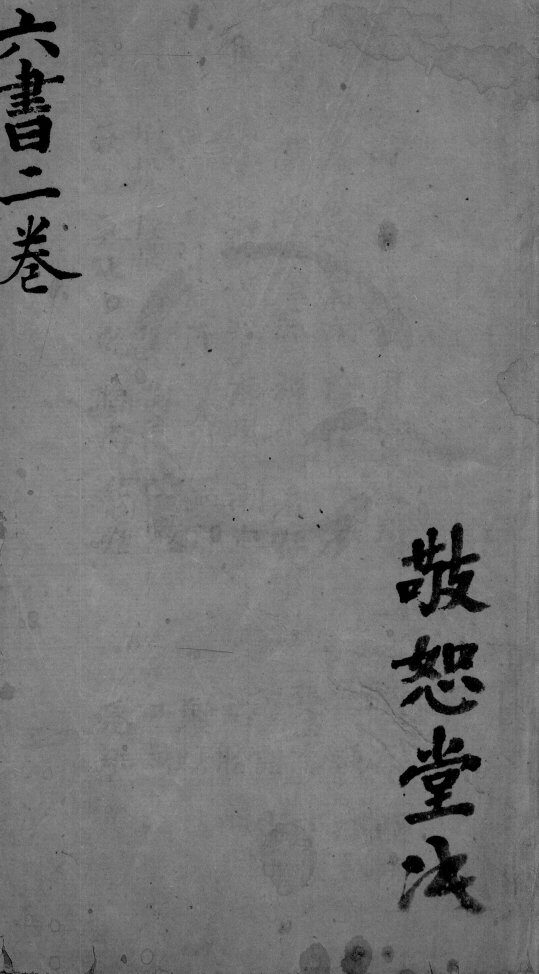 敬恕堂
六書二卷